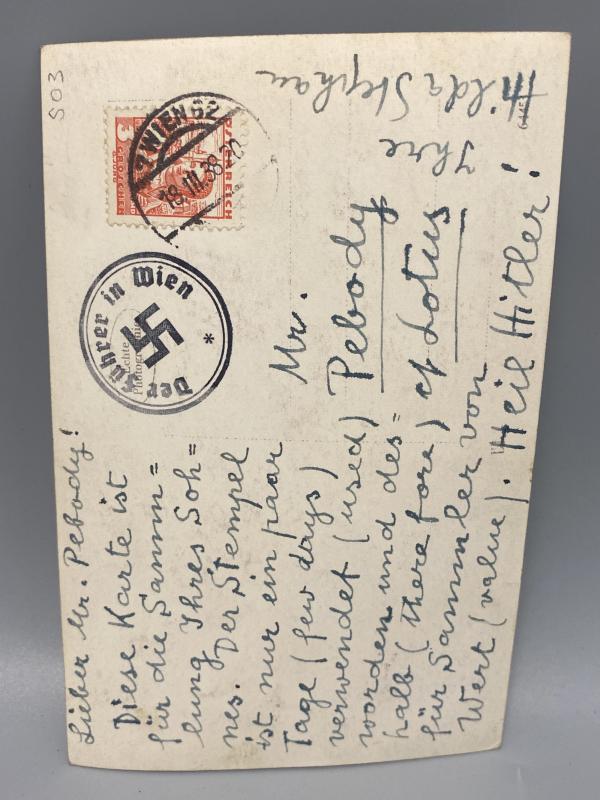 S03
Lieber Mr. Pebody!
Diese Karte ist
für die Samm=
lung Ihres Soh=
nes. Der Stempel
ist nur ein paar
Tage (few days)
verwendet (used)
worden und des=
halb (therefore)
für Sammler von
Wert (value). Heil Hitler!
Ihre
Hilda Stephan
Mr.
Pebody
of Lotus
WIEN 62
18.III.38
ÖSTERREICH
3 GROSCHEN
Der Führer in Wien *
Echte
Photographie